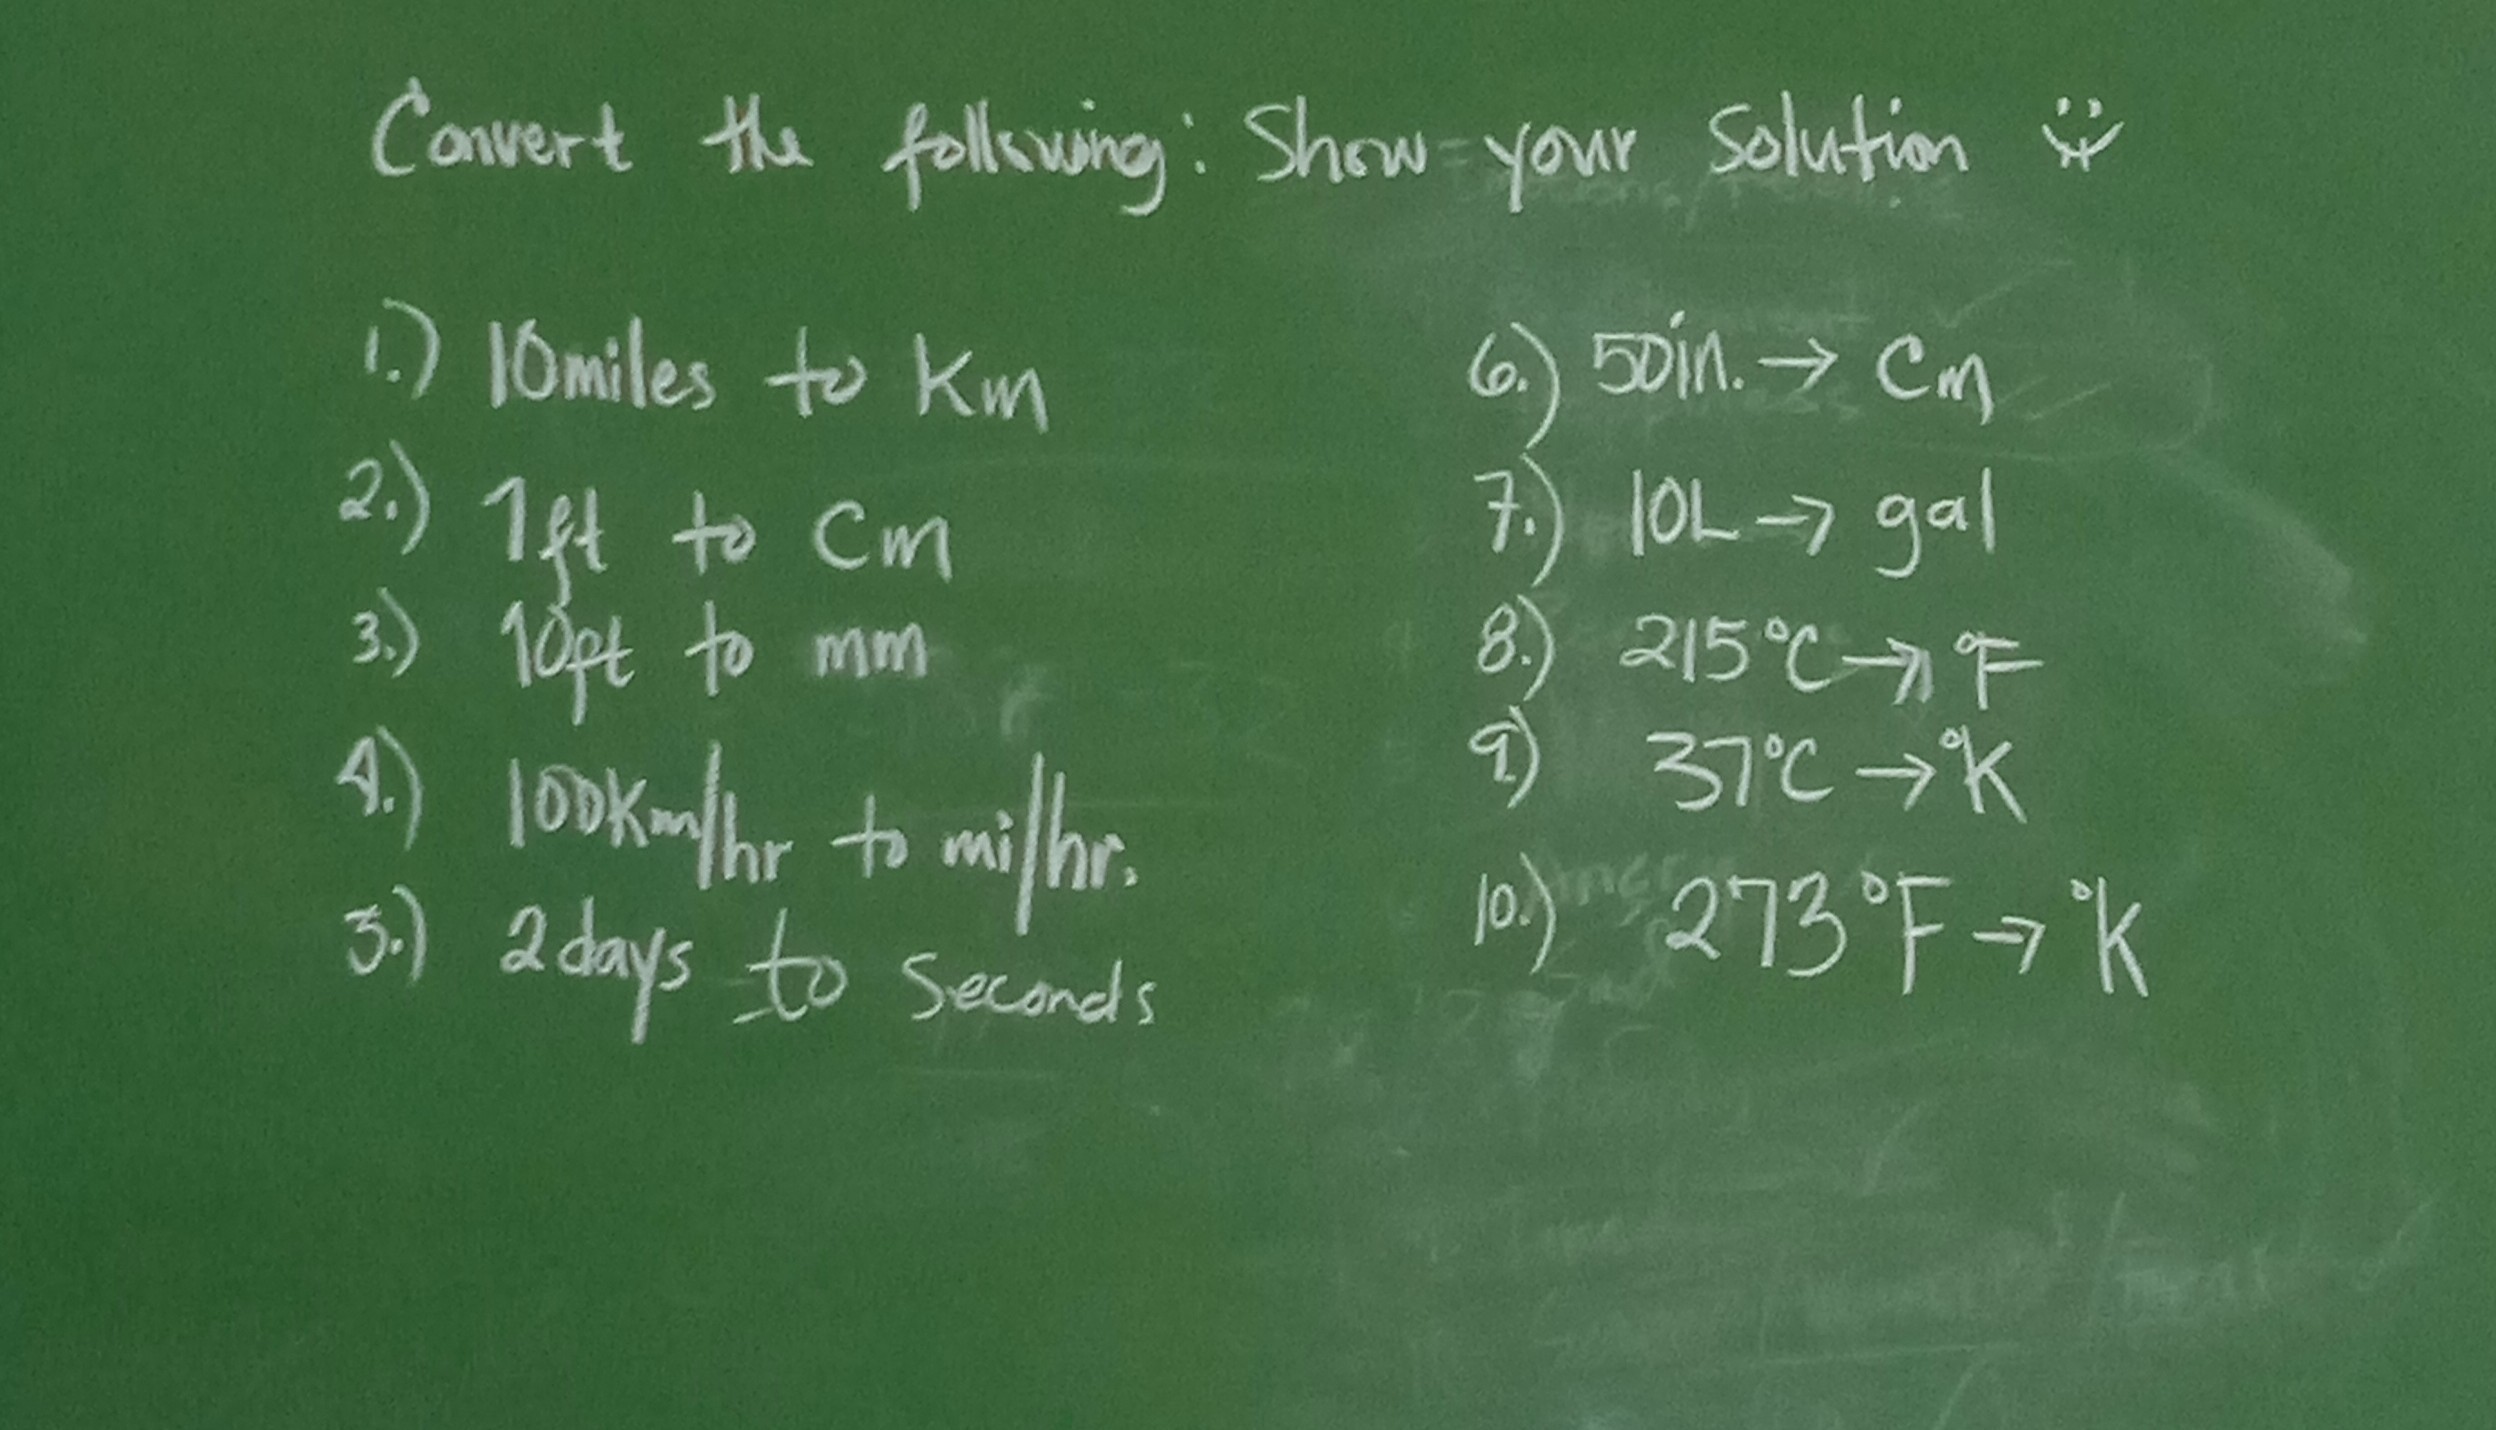 Convert the following: Show your Solution
1.) 10miles to Km
2.) 1ft to Cm
3.) 10ft to mm
4.) 100Km/hr to mi/hr.
5.) 2days to Seconds
6.) 50in. → Cm
7.) 10L → gal
8.) 215°C → °F
9) 37°C → °K
10.) 273°F → °K